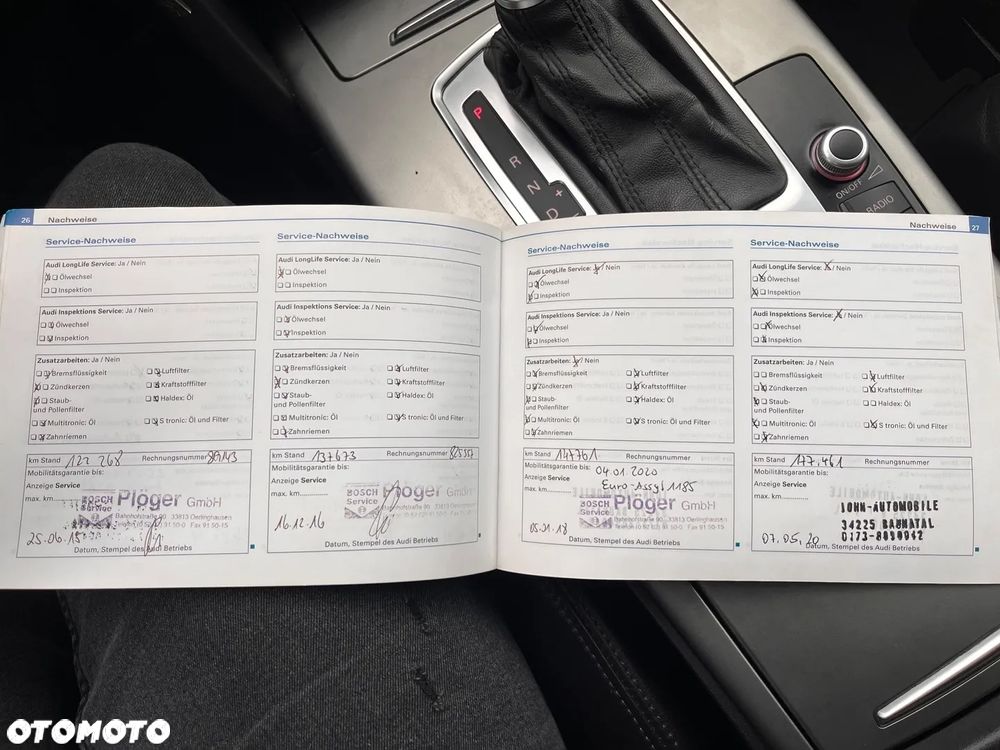 P
R
N
+
D
ON/OFF
RADIO
26 Nachweise
Service-Nachweise
Audi LongLife Service: Ja / Nein
Ölwechsel
Inspektion
Audi Inspektions Service: Ja / Nein
Ölwechsel
Inspektion
Zusatzarbeiten: Ja / Nein
Bremsflüssigkeit
Luftfilter
Zündkerzen
Kraftstofffilter
Staub-
und Pollenfilter
Haldex: Öl
Multitronic: Öl
S tronic: Öl und Filter
Zahnriemen
km Stand 122 268 Rechnungsnummer
Mobilitätsgarantie bis:
Anzeige Service
max. km
BOSCH Service
Plöger GmbH
Bahnhofstraße 90 · 33813 Oerlinghausen
25.06.15
Datum, Stempel des Audi Betriebs
Service-Nachweise
Audi LongLife Service: Ja / Nein
Ölwechsel
Inspektion
Audi Inspektions Service: Ja / Nein
Ölwechsel
Inspektion
Zusatzarbeiten: Ja / Nein
Bremsflüssigkeit
Luftfilter
Zündkerzen
Kraftstofffilter
Staub-
und Pollenfilter
Haldex: Öl
Multitronic: Öl
S tronic: Öl und Filter
Zahnriemen
km Stand 137673 Rechnungsnummer
Mobilitätsgarantie bis:
Anzeige Service
max. km
BOSCH Service
Plöger GmbH
16.12.16
Datum, Stempel des Audi Betriebs
Nachweise 27
Service-Nachweise
Audi LongLife Service: Ja / Nein
Ölwechsel
Inspektion
Audi Inspektions Service: Ja / Nein
Ölwechsel
Inspektion
Zusatzarbeiten: Ja / Nein
Bremsflüssigkeit
Luftfilter
Zündkerzen
Kraftstofffilter
Staub-
und Pollenfilter
Haldex: Öl
Multitronic: Öl
S tronic: Öl und Filter
Zahnriemen
km Stand 147761 Rechnungsnummer
Mobilitätsgarantie bis: 04.01.2020
Anzeige Service
max. km
BOSCH Service
Plöger GmbH
Bahnhofstraße 90 · 33813 Oerlinghausen
05.01.18
Datum, Stempel des Audi Betriebs
Service-Nachweise
Audi LongLife Service: Ja / Nein
Ölwechsel
Inspektion
Audi Inspektions Service: Ja / Nein
Ölwechsel
Inspektion
Zusatzarbeiten: Ja / Nein
Bremsflüssigkeit
Luftfilter
Zündkerzen
Kraftstofffilter
Staub-
und Pollenfilter
Haldex: Öl
Multitronic: Öl
S tronic: Öl und Filter
Zahnriemen
km Stand 177.461 Rechnungsnummer
Mobilitätsgarantie bis:
Anzeige Service
max. km
LOHN-AUTOMOBILE
34225 BAUNATAL
07.05.20
Datum, Stempel des Audi Betriebs
OTOMOTO